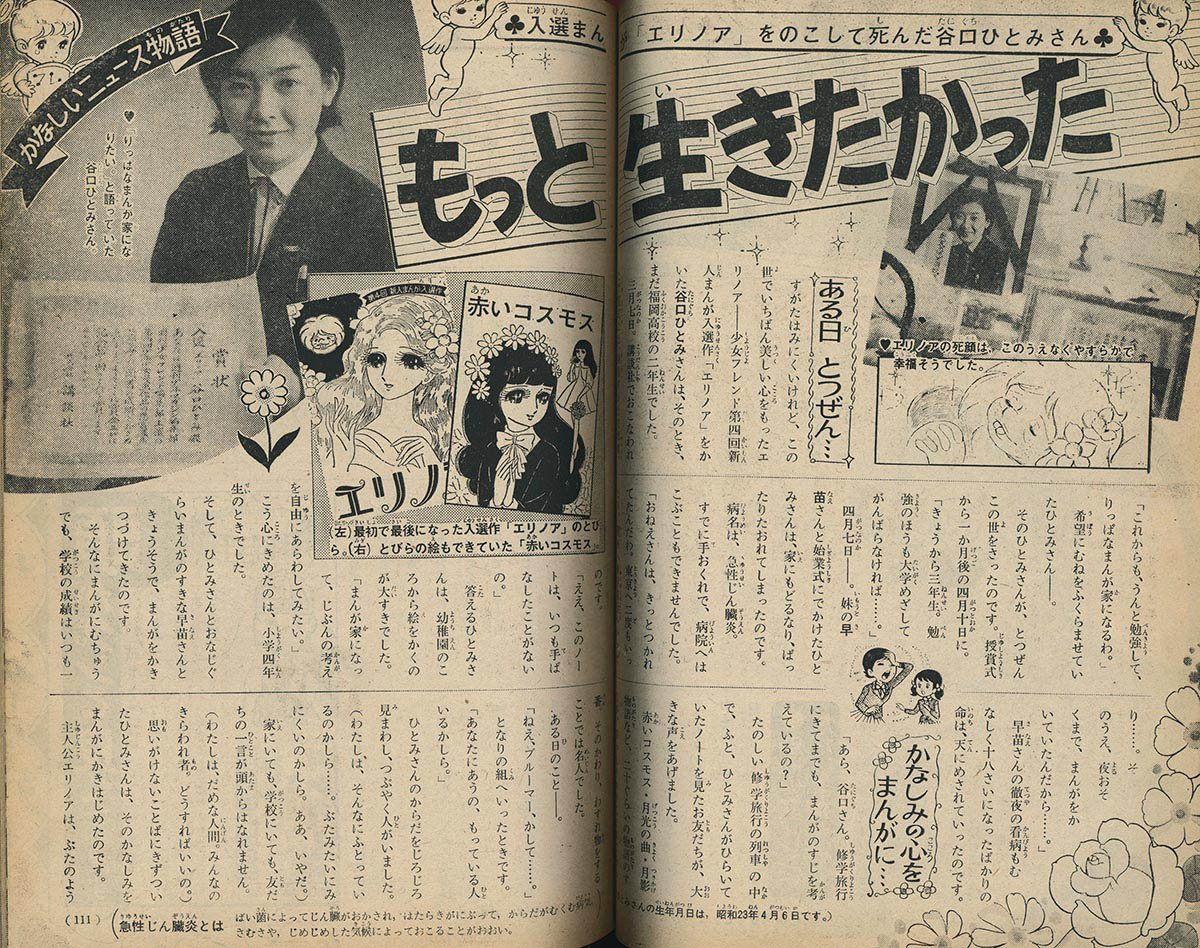 かなしいニュース物語
♣入選まん
「エリノア」をのこして死んだ谷口ひとみさん♣
もっと生きたかった
♥「りっぱなまんが家にな
りたい。」と語っていた
谷口ひとみさん。
賞状
谷口ひとみ殿
講談社
♥エリノアの死顔は、このうえなくやすらかで
幸福そうでした。
ある日 とつぜん…
すがたはみにくいけれど、この
世でいちばん美しい心をもったエ
リノア――少女フレンド第四回新
人まんが入選作「エリノア」をか
いた谷口ひとみさんは、そのとき、
まだ福岡高校の二年生でした。
三月七日。講談社でおこなわれ
「これからも、うんと勉強して、
りっぱなまんが家になるわ。」
希望にむねをふくらませてい
たひとみさん――。
そのひとみさんが、とつぜん
この世をさったのです。授賞式
から一か月後の四月十日に。
「きょうから三年生。勉
強のほうも大学めざして
がんばらなければ……。」
四月七日――。妹の早
苗さんと始業式にでかけたひと
みさんは、家にもどるなり、ばっ
たりたおれてしまったのです。
病名は、急性じん臓炎。
すでに手おくれで、病院へはは
こぶこともできませんでした。
「おねえさんは、きっとつかれ
てたんだわ。東京へ二度もいっ
り……。そ
のうえ、夜おそ
くまで、まんがをか
いていたんだから……。」
早苗さんの徹夜の看病もむ
なしく、十八さいになったばかりの
命は、天にめされていったのです。
かなしみの心を
まんがに…
「あら、谷口さん。修学旅行
にきてまでも、まんがのすじを考
えているの?」
たのしい修学旅行の列車の中
で、ふと、ひとみさんがひらいて
いたノートを見たお友だちが、大
きな声をあげました。
赤いコスモス・月光の曲・月影
物語など、二十ぐらいの物語のす
第4回 新人まんが入選作
エリノ
赤いコスモス
(左)最初で最後になった入選作「エリノア」のとび
ら。(右)とびらの絵もできていた「赤いコスモス」。
のです。
「ええ、このノー
トは、いつも手ば
なしたことがない
の。」
答えるひとみさ
んは、幼稚園のこ
ろから絵をかくの
が大すきでした。
「まんが家になっ
て、じぶんの考え
を自由にあらわしてみたい。」
こう心にきめたのは、小学四年
生のときでした。
そして、ひとみさんとおなじぐ
らいまんがのすきな早苗さんと
きょうそうで、まんがをかき
つづけてきたのです。
そんなにまんがにむちゅう
でも、学校の成績はいつも一
番。そのかわり、わすれ物をする
ことでは名人でした。
ある日のこと――。
「ねえ、ブルーマー、かして……。」
となりの組へいったときです。
「あなたにあうの、もっている人
いるかしら。」
ひとみさんのからだをじろじろ
見まわし、つぶやく人がいました。
(わたしは、そんなにふとってい
るのかしら……。ぶたみたいにみ
にくいのかしら。ああ、いやだ。)
家にいても、学校にいても、友だ
ちの一言が頭からはなれません。
(わたしは、だめな人間。みんなの
きらわれ者。どうすればいいの。)
思いがけないことばにきずつい
たひとみさんは、そのかなしみを
まんがにかきはじめたのです。
主人公エリノアは、ぶたのよう
みさんの生年月日は、昭和23年4月6日です。)
(111)
急性じん臓炎とは
ばい菌によってじん臓がおかされ、はたらきがにぶって、からだがむくむ病気
さむさや、じめじめした気候によっておこることがおおい。